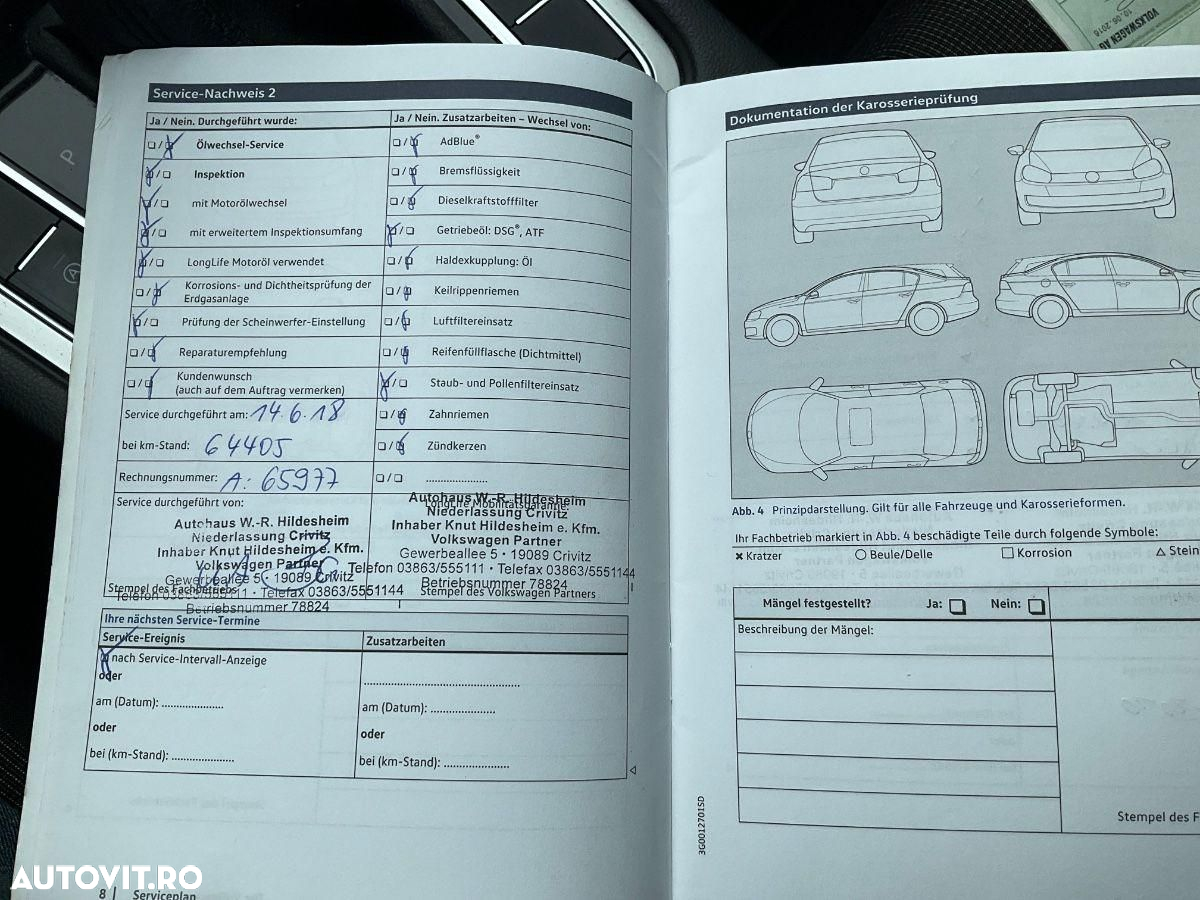 VOLKSWAGEN AG
10.06.2016
P
A
Service-Nachweis 2
Ja / Nein. Durchgeführt wurde:
Ölwechsel-Service
Inspektion
mit Motorölwechsel
mit erweitertem Inspektionsumfang
LongLife Motoröl verwendet
Korrosions- und Dichtheitsprüfung der
Erdgasanlage
Prüfung der Scheinwerfer-Einstellung
Reparaturempfehlung
Kundenwunsch
(auch auf dem Auftrag vermerken)
Service durchgeführt am: 14.6.18
bei km-Stand: 64405
Rechnungsnummer: A: 65977
Service durchgeführt von:
Autohaus W.-R. Hildesheim
Niederlassung Crivitz
Inhaber Knut Hildesheim e. Kfm.
Volkswagen Partner
Gewerbeallee 5 • 19089 Crivitz
Stempel des Fachbetriebs
Telefon 03863/555111 • Telefax 03863/5551144
Betriebsnummer 78824
Ja / Nein. Zusatzarbeiten – Wechsel von:
AdBlue®
Bremsflüssigkeit
Dieselkraftstofffilter
Getriebeöl: DSG®, ATF
Haldexkupplung: Öl
Keilrippenriemen
Luftfiltereinsatz
Reifenfüllflasche (Dichtmittel)
Staub- und Pollenfiltereinsatz
Zahnriemen
Zündkerzen
....................
LongLife Mobilitätsgarantie:
Autohaus W.-R. Hildesheim
Niederlassung Crivitz
Inhaber Knut Hildesheim e. Kfm.
Volkswagen Partner
Gewerbeallee 5 • 19089 Crivitz
Telefon 03863/555111 • Telefax 03863/5551144
Betriebsnummer 78824
Stempel des Volkswagen Partners
Ihre nächsten Service-Termine
Service-Ereignis
nach Service-Intervall-Anzeige
oder
am (Datum): ....................
oder
bei (km-Stand): ....................
Zusatzarbeiten
..................................................
am (Datum): ....................
oder
bei (km-Stand): ....................
8 | Serviceplan
Dokumentation der Karosserieprüfung
Abb. 4 Prinzipdarstellung. Gilt für alle Fahrzeuge und Karosserieformen.
Ihr Fachbetrieb markiert in Abb. 4 beschädigte Teile durch folgende Symbole:
× Kratzer ○ Beule/Delle □ Korrosion △ Stein
Mängel festgestellt? Ja: Nein:
Beschreibung der Mängel:
Stempel des F
3G0012701SD
AUTOVIT.RO